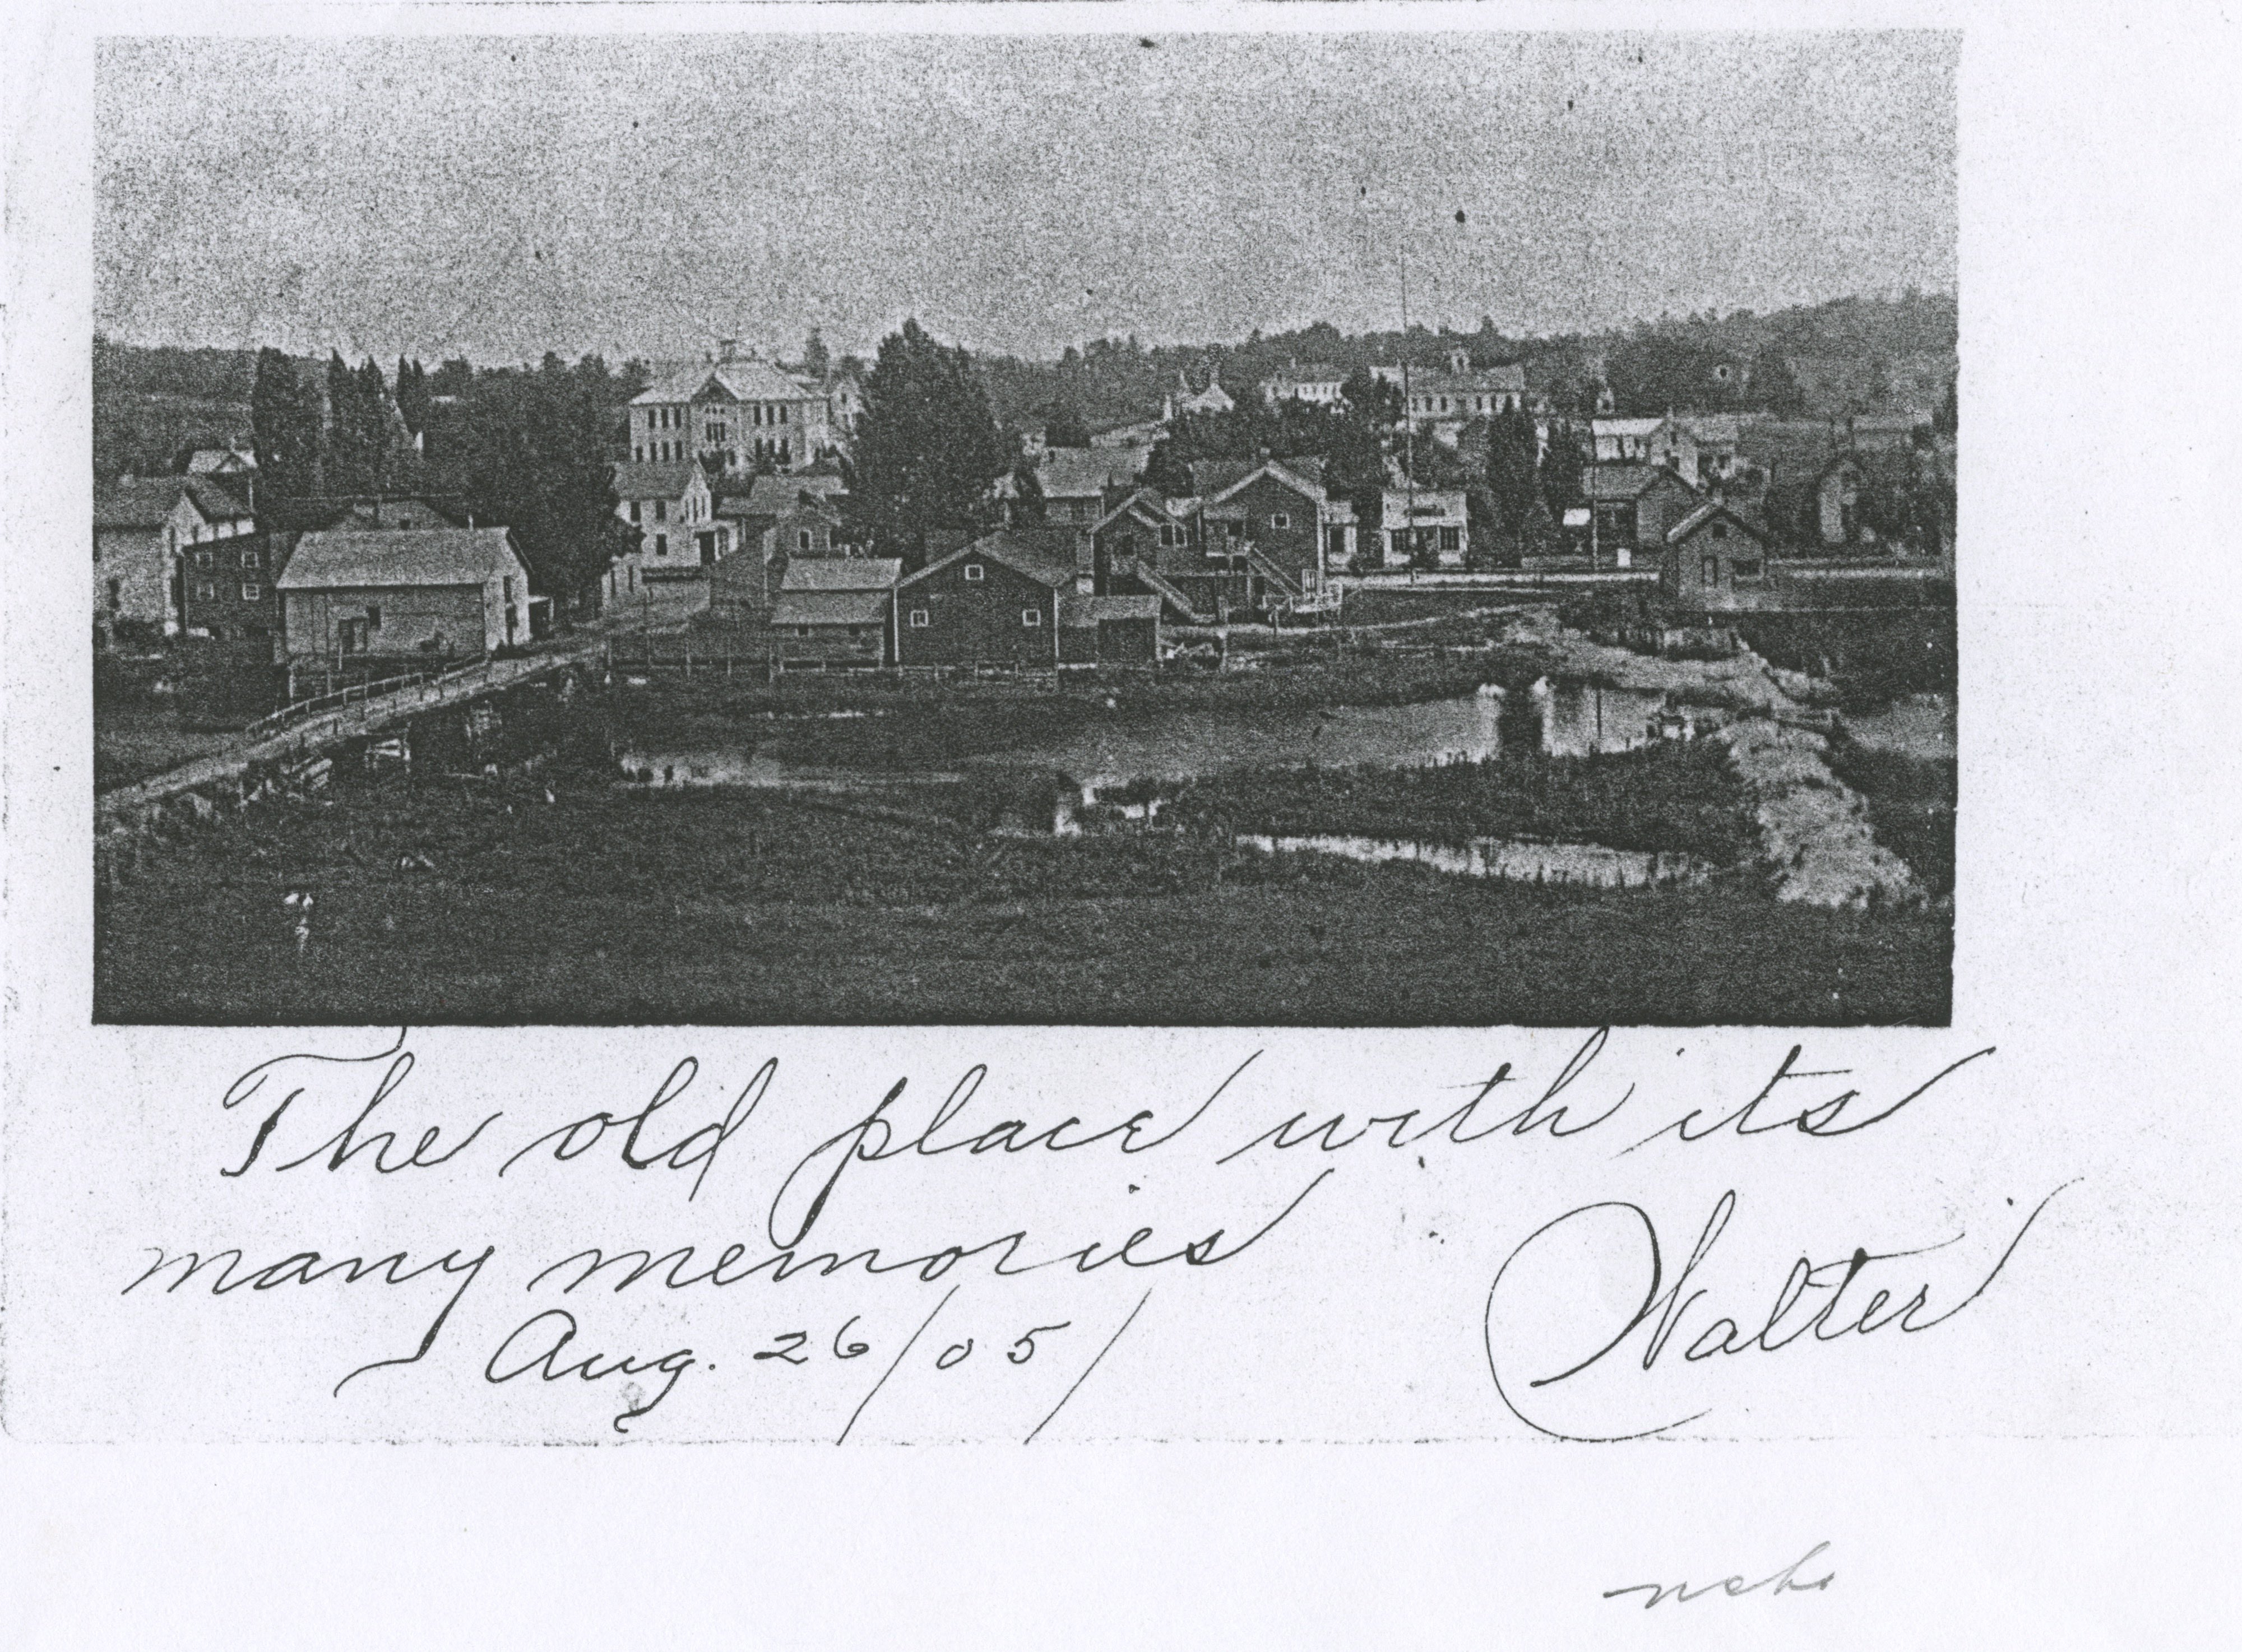 The old place with its
many memories
Walter
Aug. 26/05/